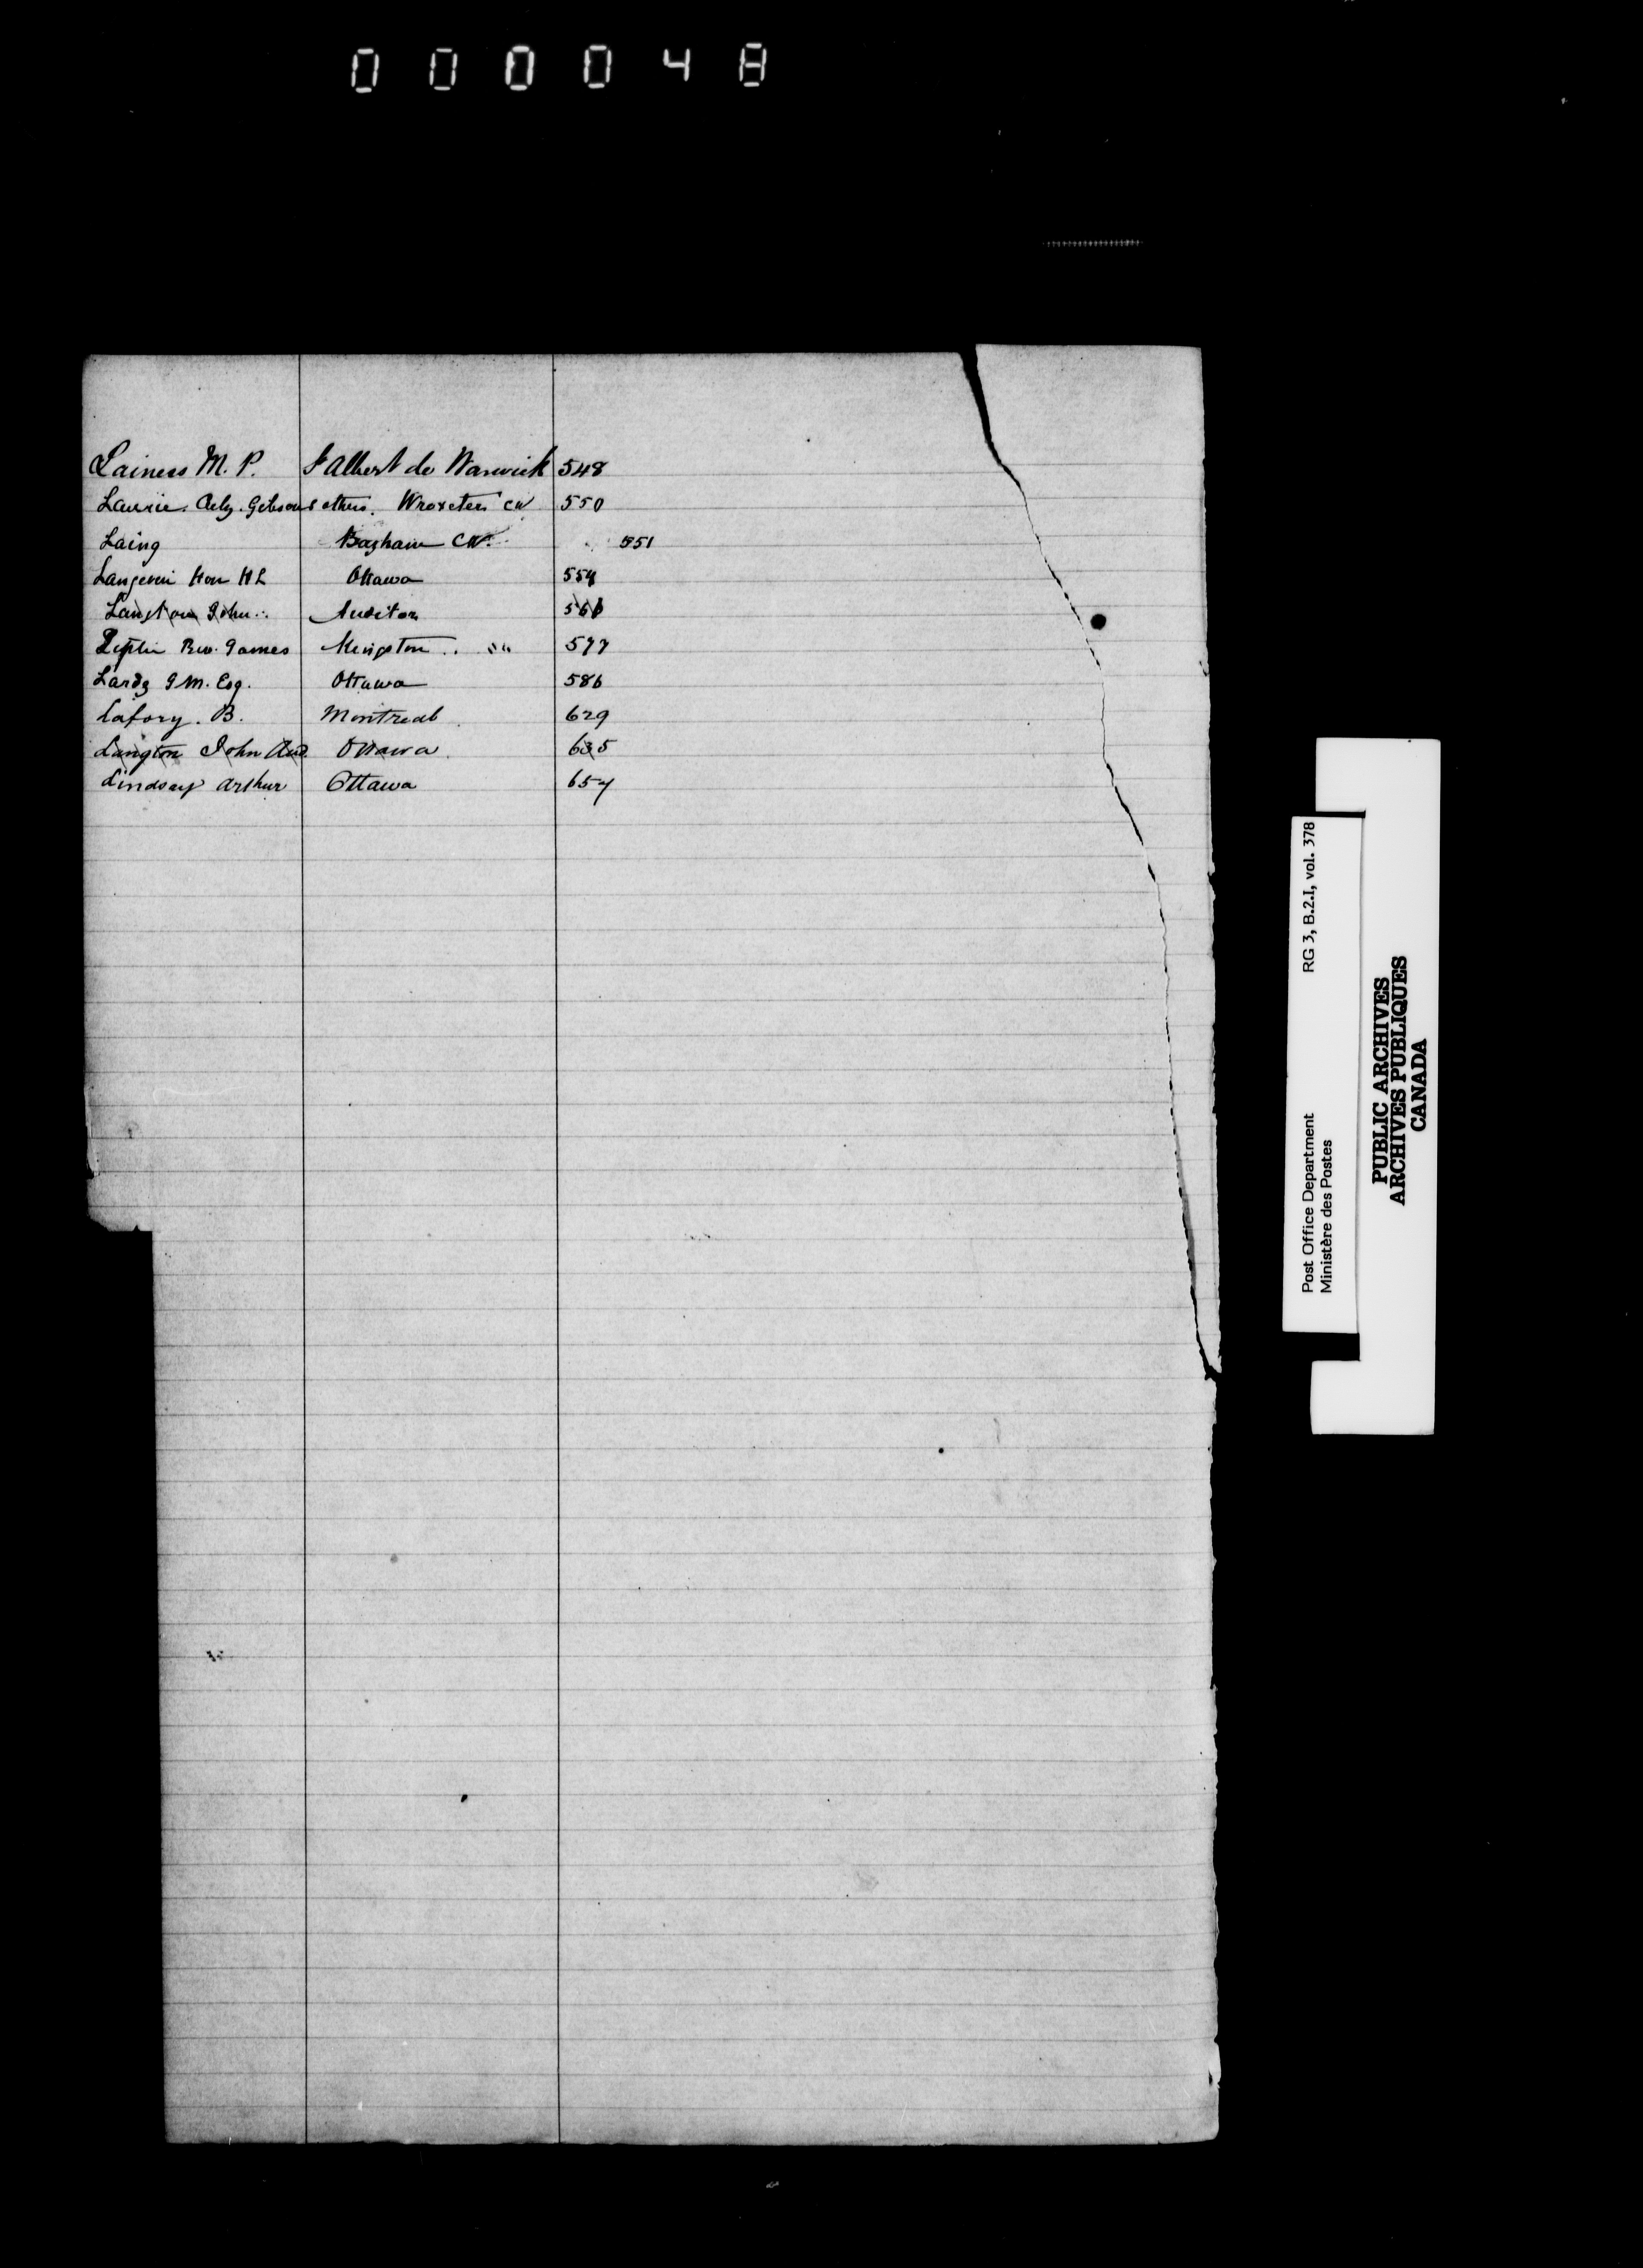 000048
Lainess M. P. St Albert de Warwick 548
Laurie. Gibson & others. Wroxeter CW 550
Laing CW. 551
Langevin Hon H L Ottawa 554
Langton John Auditor 566
Rev. James Kingston 577
Lardy J M. Esq. Ottawa 586
Lafory. B. Montreal 629
Langton John Aud. Ottawa 635
Lindsay Arthur Ottawa 657
Post Office Department RG 3, B.2.I, vol. 378
Ministère des Postes
PUBLIC ARCHIVES
ARCHIVES PUBLIQUES
CANADA